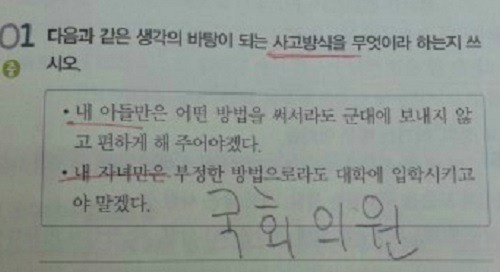 01 다음과 같은 생각의 바탕이 되는 사고방식을 무엇이라 하는지 쓰
중 시오.
• 내 아들만은 어떤 방법을 써서라도 군대에 보내지 않
고 편하게 해 주어야겠다.
• 내 자녀만은 부정한 방법으로라도 대학에 입학시키고
야 말겠다.
국회의원